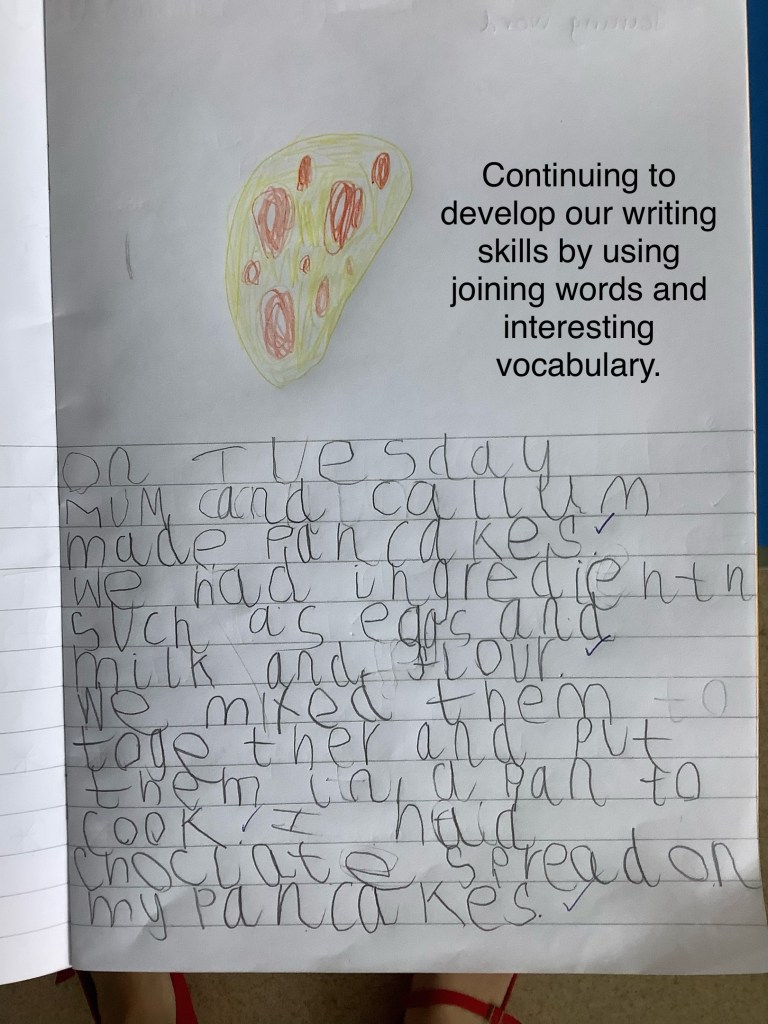 Continuing to
develop our writing
skills by using
joining words and
interesting
vocabulary.
on Tuesday
MUM cand callum
made pancakes.
we had ingredientn
such as eggs and
milk and flour.
We mixed them to
toge ther and put
them in a pan to
cook. I had
choclate spread on
my pancakes.